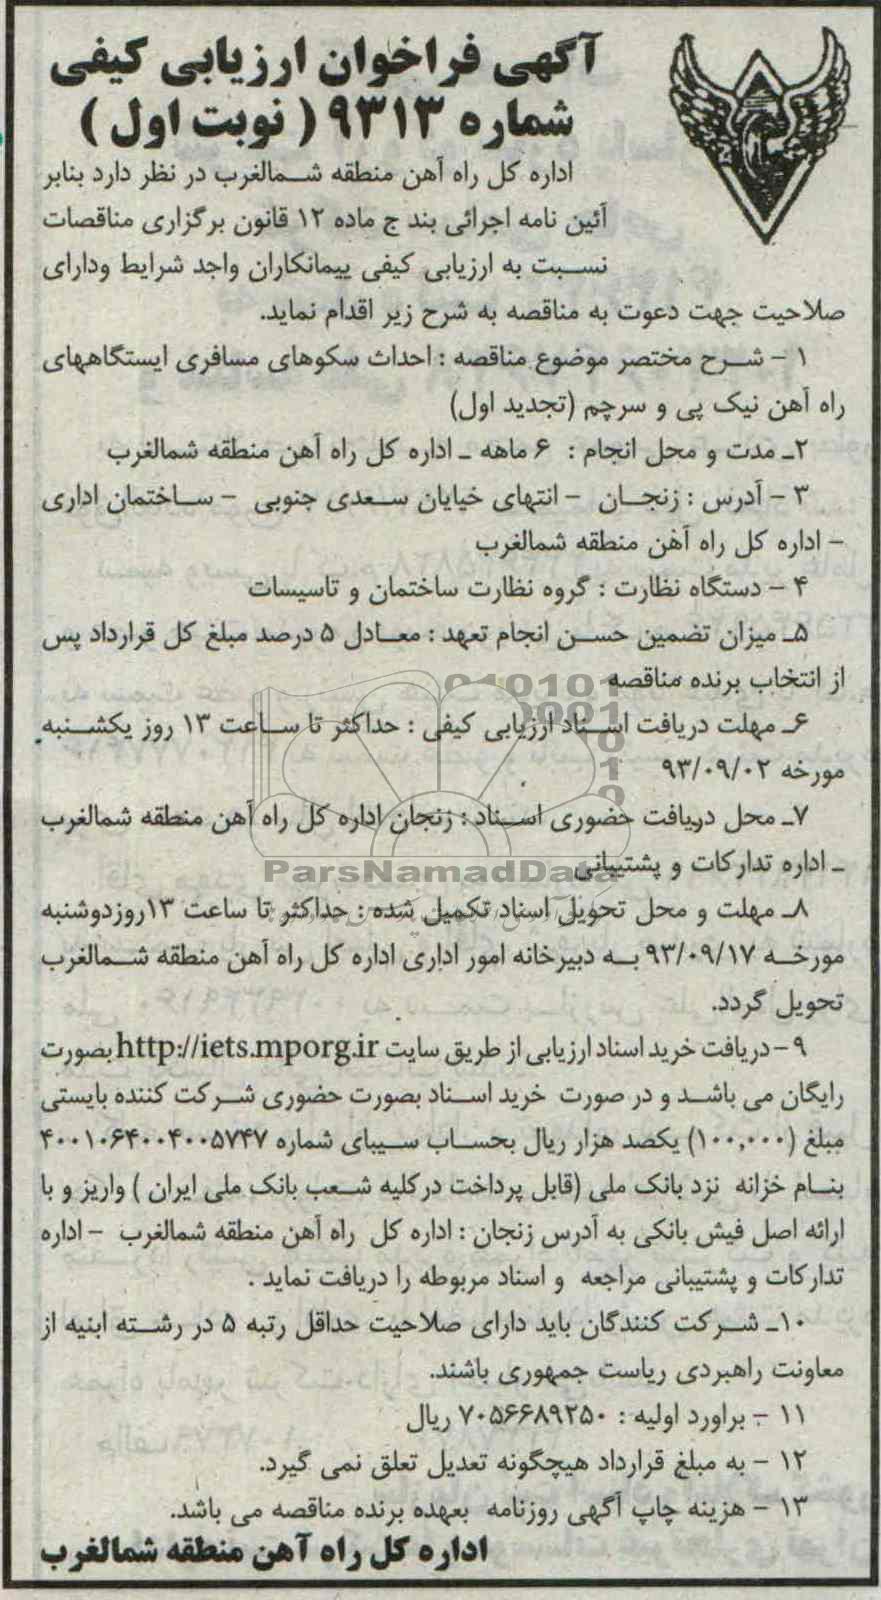 آگهی فراخوان ارزیابی کیفی
شماره ۹۳۱۳ ( نوبت اول )
اداره کل راه آهن منطقه شمالغرب در نظر دارد بنابر
آئین نامه اجرائی بند ج ماده ۱۲ قانون برگزاری مناقصات
نسبت به ارزیابی کیفی پیمانکاران واجد شرایط ودارای
صلاحیت جهت دعوت به مناقصه به شرح زیر اقدام نماید.
۱ - شرح مختصر موضوع مناقصه : احداث سکوهای مسافری ایستگاههای
راه آهن نیک پی و سرچم (تجدید اول)
۲ـ مدت و محل انجام : ۶ ماهه ـ اداره کل راه آهن منطقه شمالغرب
۳ - آدرس : زنجان - انتهای خیایان سعدی جنوبی - ساختمان اداری
- اداره کل راه آهن منطقه شمالغرب
۴ - دستگاه نظارت : گروه نظارت ساختمان و تاسیسات
۵ـ میزان تضمین حسن انجام تعهد : معادل ۵ درصد مبلغ کل قرارداد پس
از انتخاب برنده مناقصه
۶ـ مهلت دریافت اسناد ارزیابی کیفی : حداکثر تا ساعت ۱۳ روز یکشنبه
مورخه ۹۳/۰۹/۰۲
۷ـ محل دریافت حضوری اسناد : زنجان اداره کل راه آهن منطقه شمالغرب
ـ اداره تدارکات و پشتیبانی
۸ـ مهلت و محل تحویل اسناد تکمیل شده : حداکثر تا ساعت ۱۳روزدوشنبه
مورخه ۹۳/۰۹/۱۷ به دبیرخانه امور اداری اداره کل راه آهن منطقه شمالغرب
تحویل گردد.
۹ -دریافت خرید اسناد ارزیابی از طریق سایت http://iets.mporg.ir بصورت
رایگان می باشد و در صورت خرید اسناد بصورت حضوری شرکت کننده بایستی
مبلغ (۱۰۰,۰۰۰) یکصد هزار ریال بحساب سیبای شماره ۴۰۰۱۰۶۴۰۰۴۰۰۵۷۴۷
بنام خزانه نزد بانک ملی (قابل پرداخت درکلیه شعب بانک ملی ایران ) واریز و با
ارائه اصل فیش بانکی به آدرس زنجان : اداره کل راه آهن منطقه شمالغرب - اداره
تدارکات و پشتیبانی مراجعه و اسناد مربوطه را دریافت نماید .
۱۰ـ شرکت کنندگان باید دارای صلاحیت حداقل رتبه ۵ در رشته ابنیه از
معاونت راهبردی ریاست جمهوری باشند.
۱۱ - براورد اولیه : ۷۰۵۶۶۸۹۲۵۰ ریال
۱۲ - به مبلغ قرارداد هیچگونه تعدیل تعلق نمی گیرد.
۱۳ - هزینه چاپ آگهی روزنامه بعهده برنده مناقصه می باشد.
اداره کل راه آهن منطقه شمالغرب
ParsNamadData